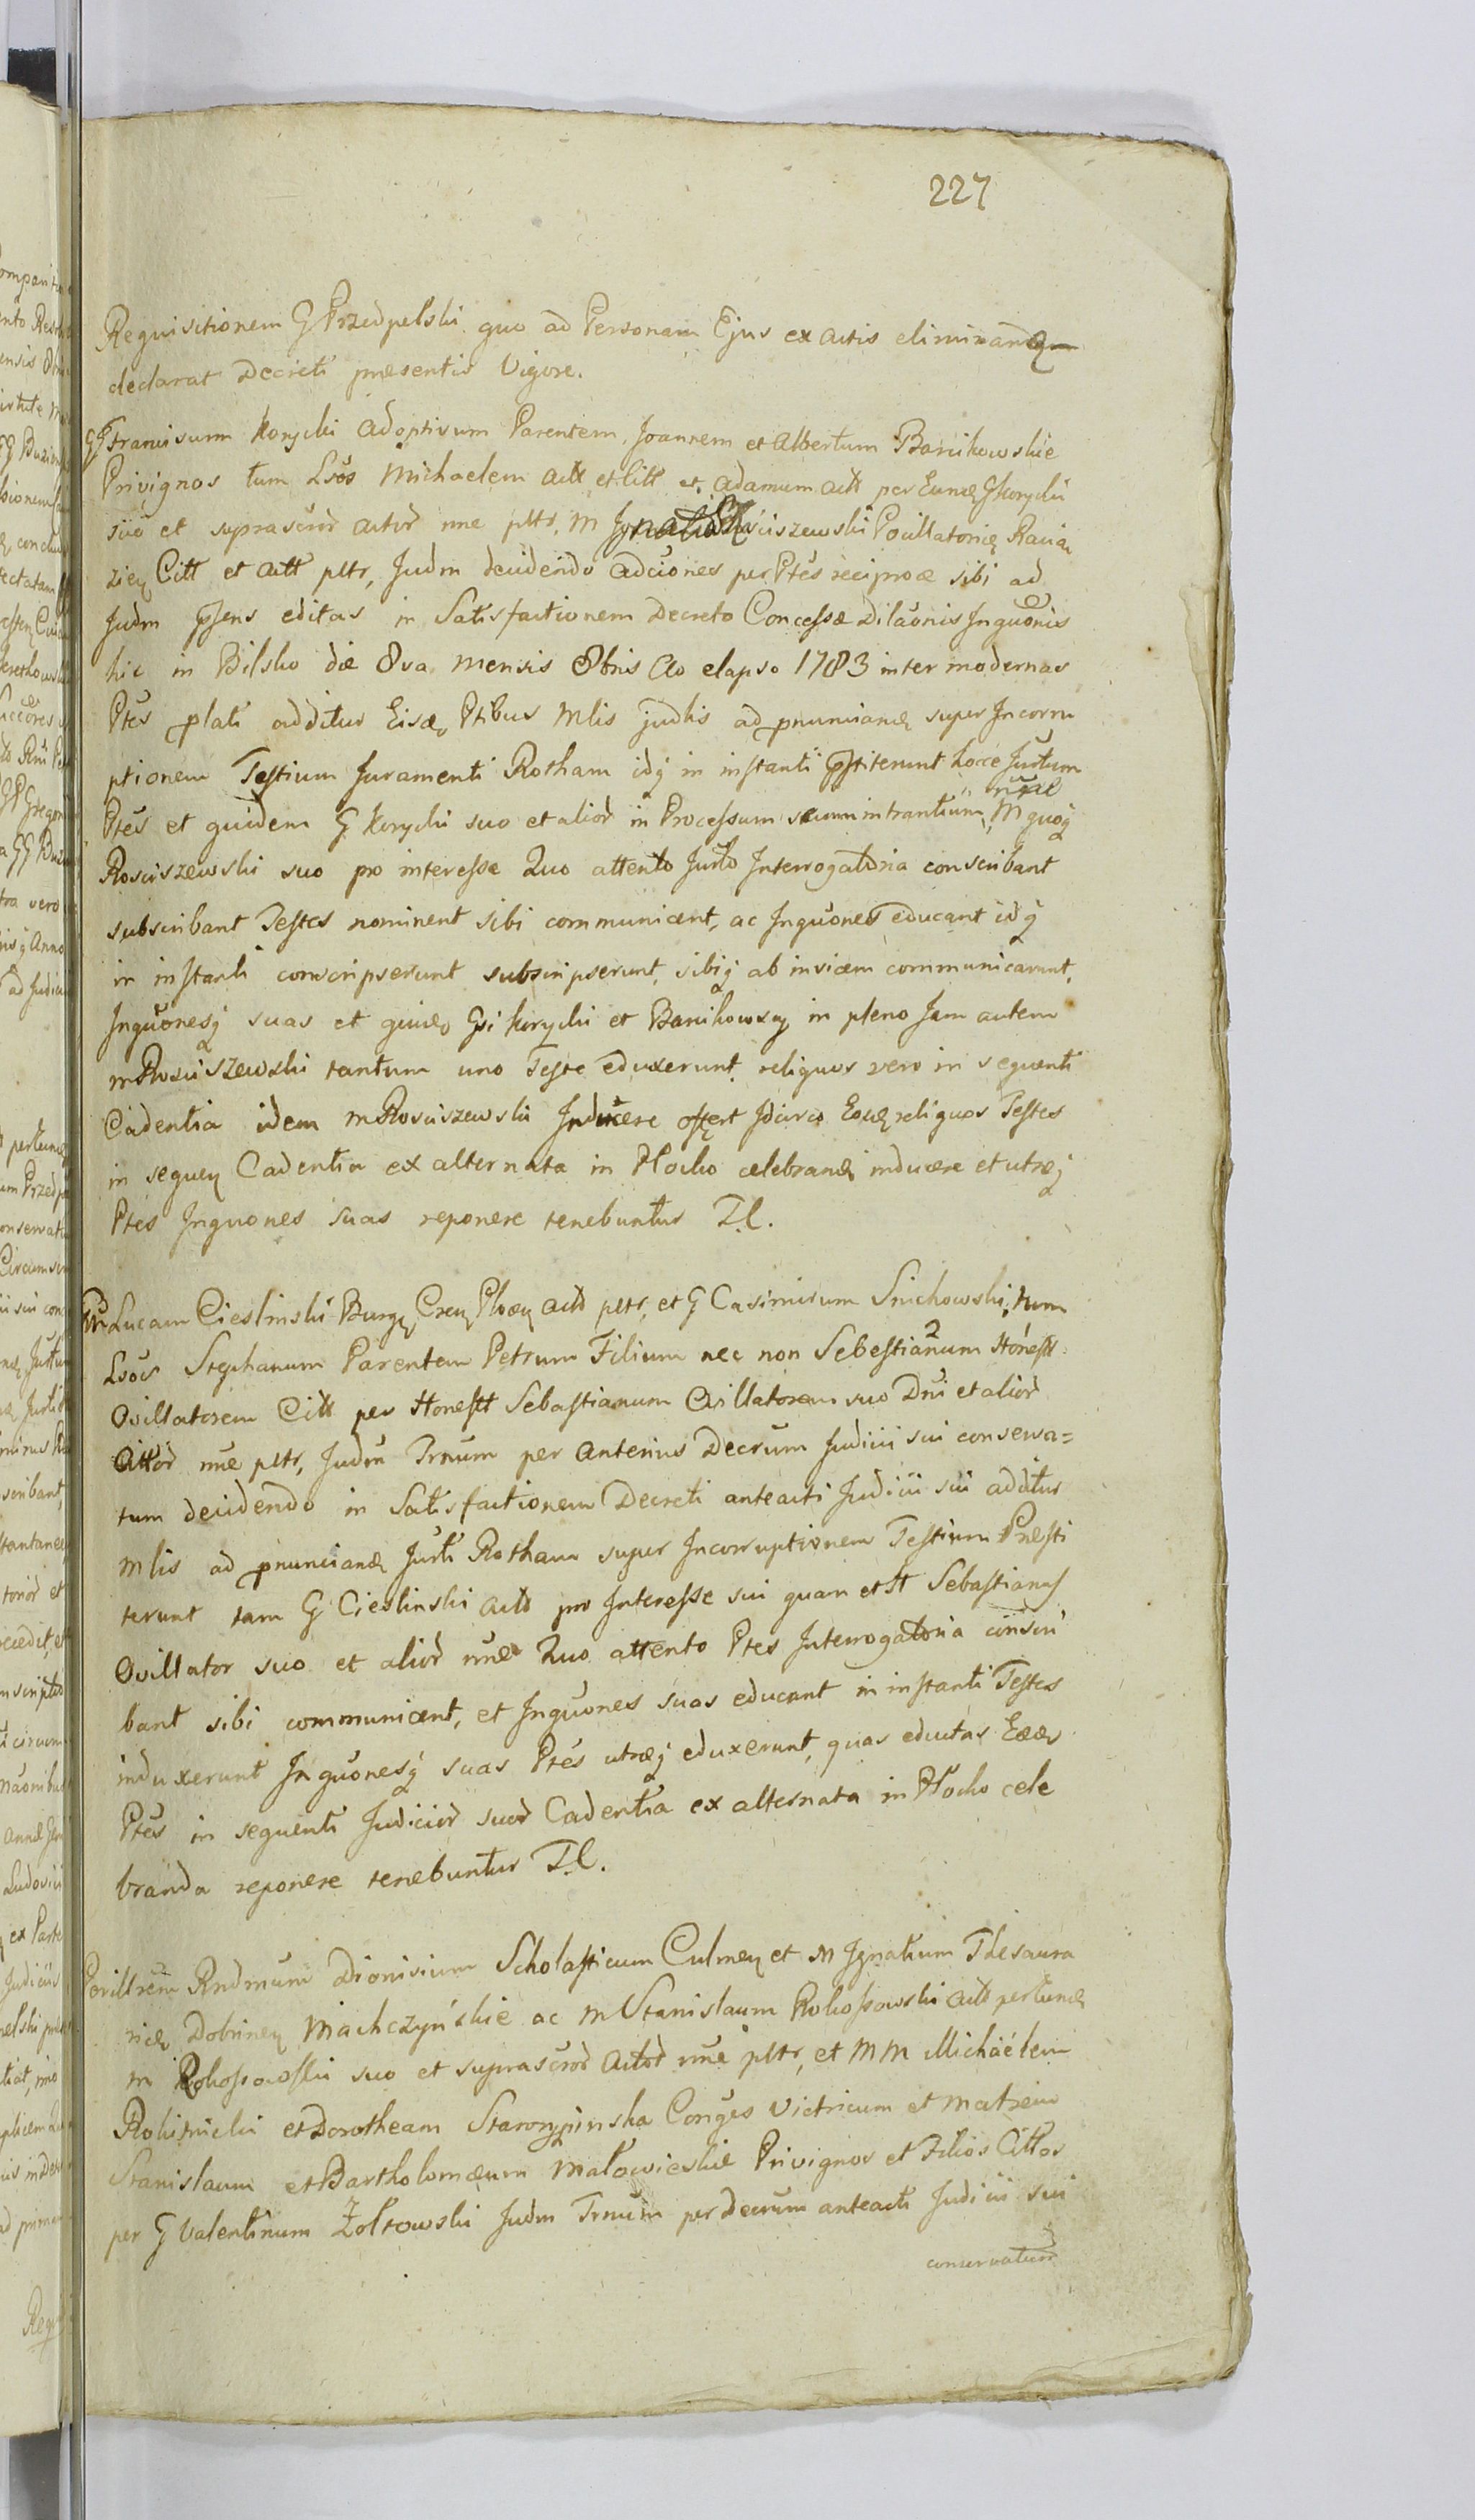 227
Requisitionem G Przedpelski quo ad Personam Ejus ex actis eliminandam
declarat Decreti praesentis Vigore.
GG Franciscum Korycki adoptivum Parentem, Joannem et Albertum Bańkowskie
Privignos tum Lsos Michaelem actt et Citt et Adamum actt per Eund G Korycki
suo et suprascror actor nne pltr, M Ignatium Rościszewski Pocillatorid Racią
zień Citt et actt pltr, Judm decidendo adciones per Ptes reciproce sibi ad
Judm psens editas in Satisfactionem Decreto Concessae Dilaonis Inquonis
hic in Bilsko die 8va mensis 8bris Ao elapso 1783 inter modernas
Ptes plati additur Eisd Ptibus Mlis judlis ad pnunciand super Incorru
ptionem Testium Juramenti Rotham idq in instanti pstiterunt hocce Jurtum
Ptes et quidem G Korycki suo et alior in Processum secum intrantium, nne M quoq
Rosciszewski suo pro interesse Quo attento Jurto Interrogatoria conscribant
subscribant Testes nominent sibi communicent, ac Inquones educant idq
in instanti conscripserunt subscripserunt, sibiq ab invicem communicarunt,
Inquonesq suas et quid Gsi Korycki et Bańkowscy in pleno Jam autem
M Rosciszewski tantum uno Teste eduxerunt, reliquos vero in sequenti
Cadentia idem M Rosciszewski Inducere offert Idcirco Eund reliquos Testes
in sequen Cadentia ex alternata in Plocko celebrand inducere et utraeq
Ptes Inquones suas reponere tenebuntur T.l.
Lucam Cieslinski Burg Cren Plocen actt pltr, et G Casimirum Snichowski, tum
Lsos Stephanum Parentem Petrum Filium nec non Sebestianum 2 Honest
Ovillatorem Citt per Honestt Sebastianum Ovillatorem suo Dni et alior
Attor nne pltr, Judm Trnum per anterius Decrum Judicii sui conserva=
tum decidendo in Satisfactionem Decreti anteacti Judicii sui additur
Mlis ad pnunciand Jurti Rotham super Incorruptionem Testium Praesti
terunt tam G Cieslinski actt pro Interesse sui quam et H Sebastianus
Ovillator suo et alior nne Quo attento Ptes Interrogatoria conscri
bant sibi communicent, et Inquones suas educant in instanti Testes
induxerunt Inquonesq suas Ptes utraeq eduxerunt, quas eductas Eaed
Ptes in sequenti Judicior suor Cadentia ex alternata in Plocko cele
branda reponere tenebuntur T.l.
Perillrem Rndmum Dionisium Scholasticum Culmen et M Ignatium Thesaura
rid Dobrinen Miachczyńskie ac M Stanislaum Rokossowski actt per Eund
M Rokossowski suo et suprascror Actor nne pltr, et MM Michaëlem
Rokitnicki et Dorotheam Starorypinska Conges Victricum et Matrem
Stanislaum et Bartholomaeum Małowieskie Privignos et Filios Cittos
per G Valentinum Żółtowski Judm Trnum per Decrum anteacti Judicii sui
conservatum